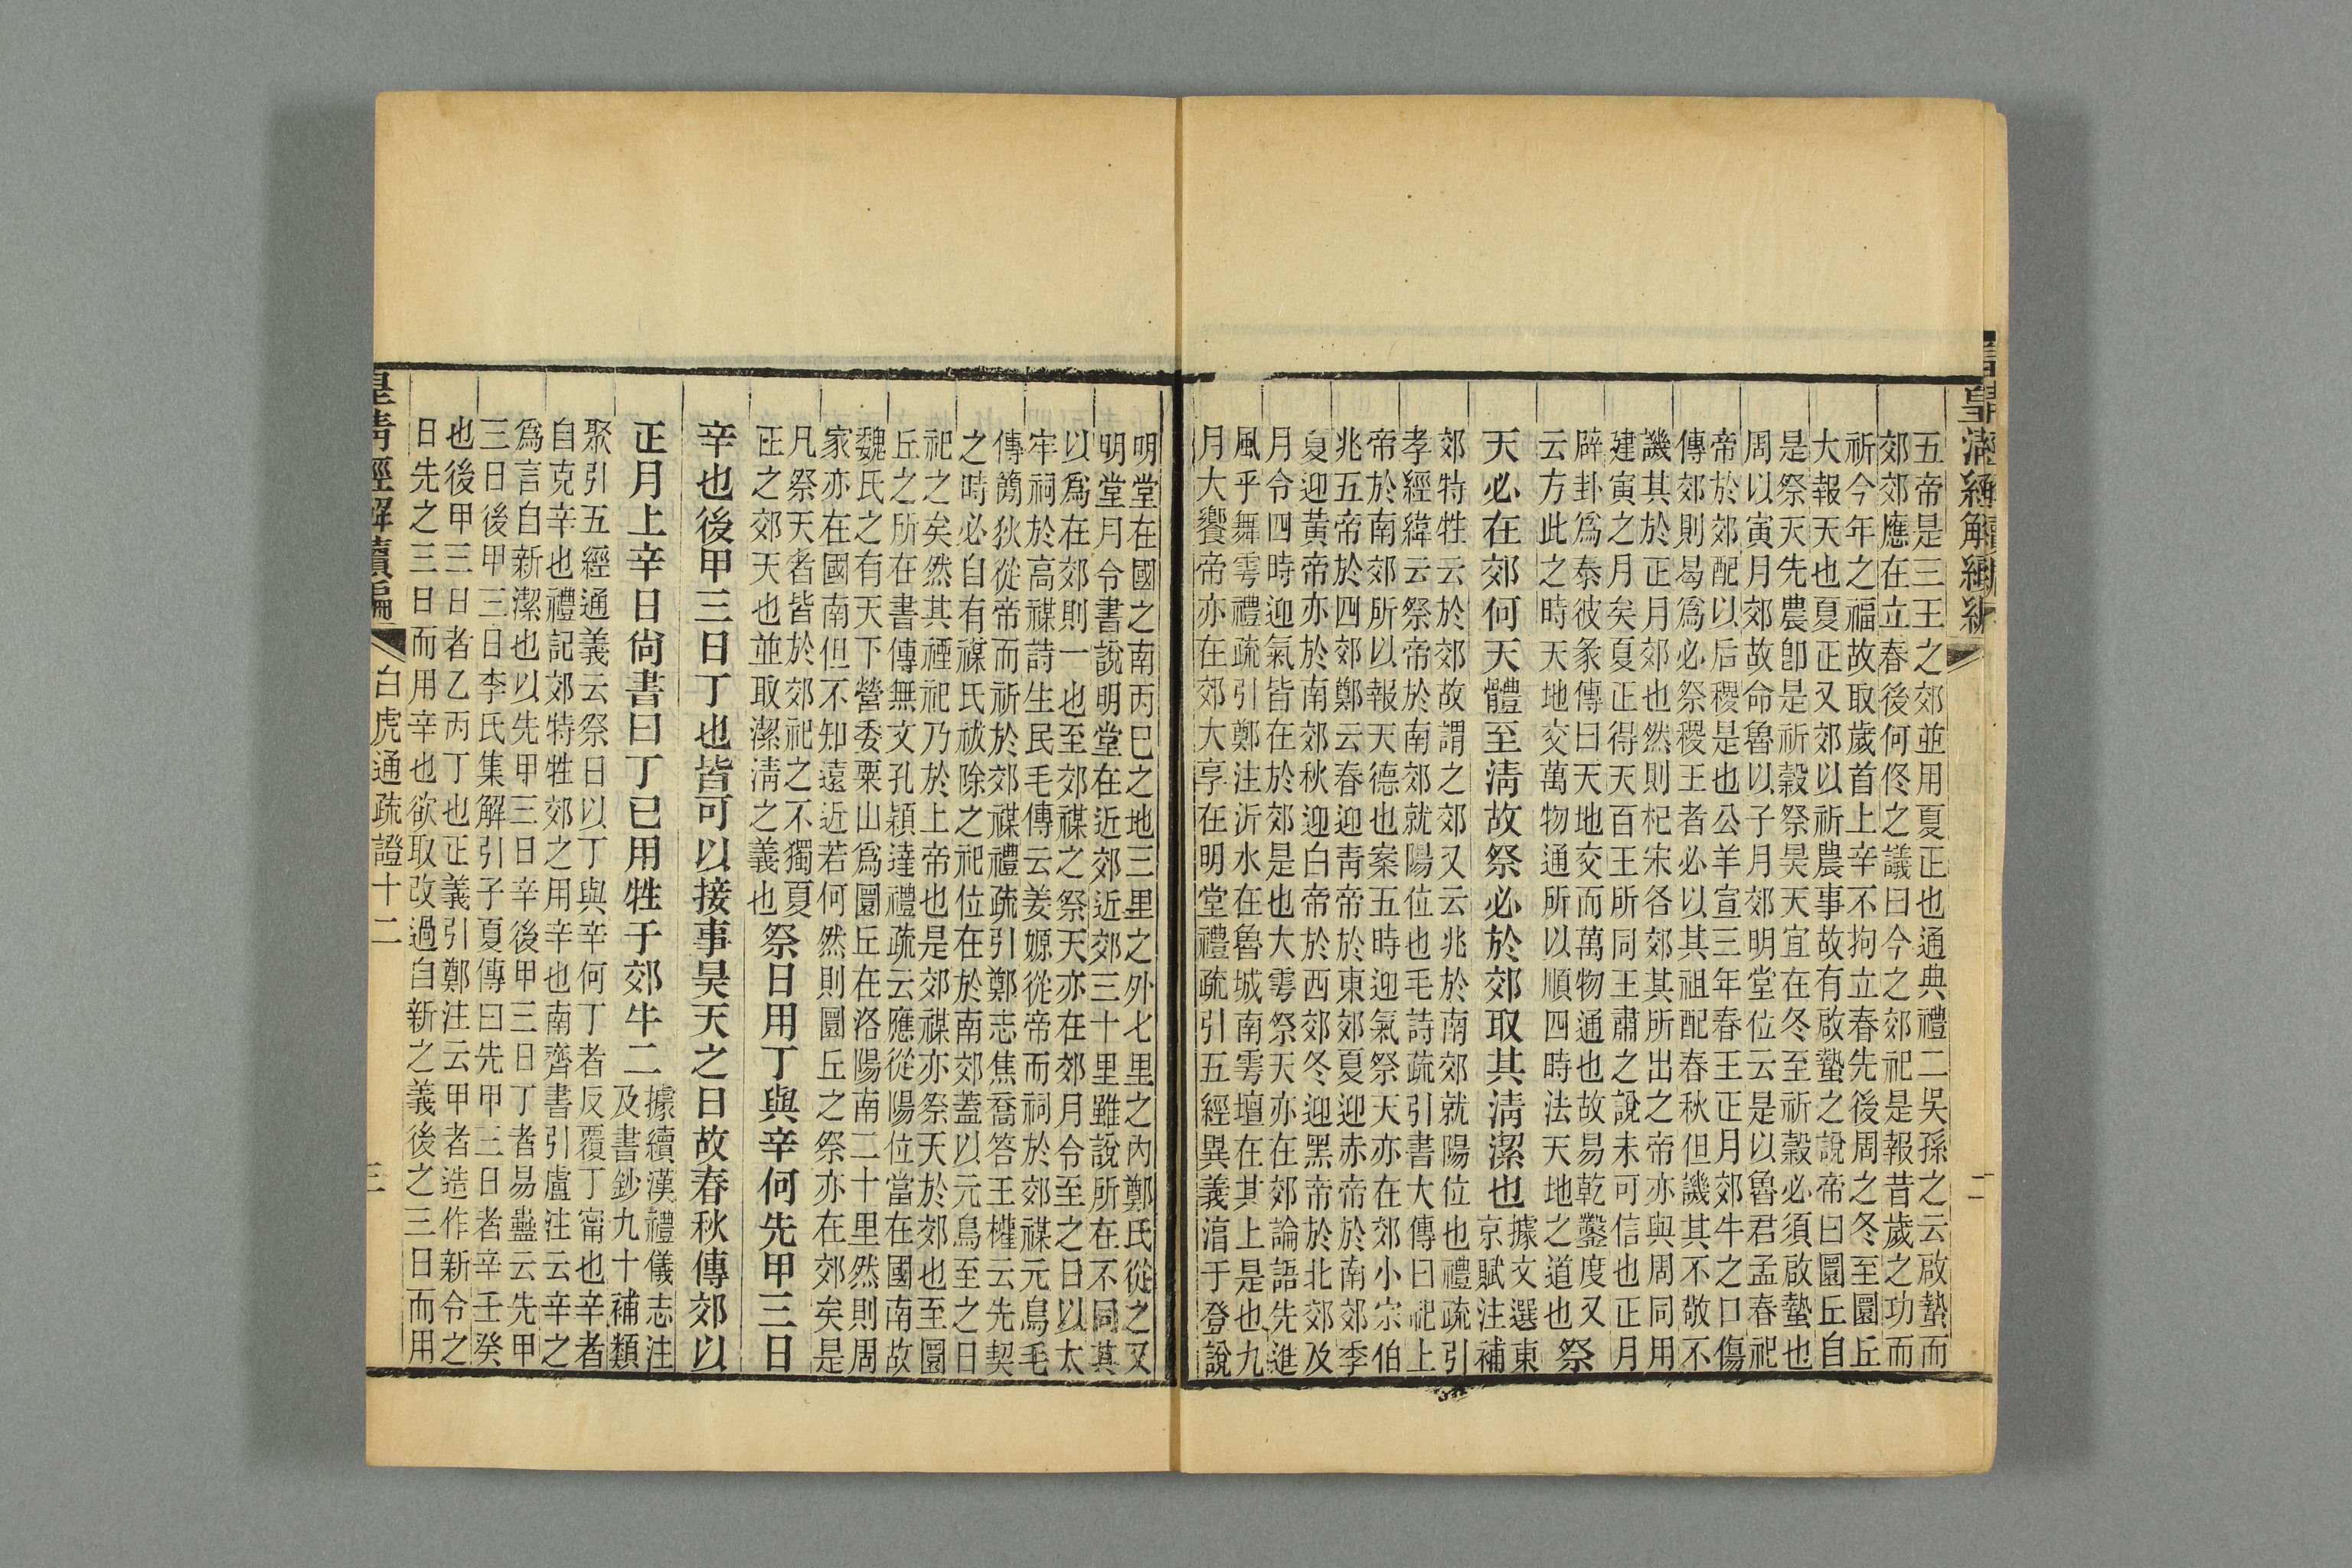 五帝是三王之郊並用夏正也通典禮二吳孫之云啟蟄而
郊郊應在立春後何佟之議曰今之郊祀是報昔歲之功而
祈今年之福故取歲首上辛不拘立春先後周之冬至圜丘
大報天也夏正又郊以祈農事故有啟蟄之說帝曰圜丘自
是祭天先農卽是祈穀祭昊天宜在冬至祈穀必須啟蟄也
周以寅月郊故命魯以子月郊明堂位云是以魯君孟春祀
帝於郊配以后稷是也公羊宣三年春王正月郊牛之口傷
傳郊則曷爲必祭稷王者必以其祖配春秋但譏其不敬不
譏其於正月郊也然則杞宋各郊其所出之帝亦與周同用
建寅之月矣夏正得天百王所同王肅之說未可信也正月
辟卦爲泰彼彖傳曰天地交而萬物通也故易乾鑿度又
云方此之時天地交萬物通所以順四時法天地之道也 祭
天必在郊何天體至淸故祭必於郊取其淸潔也 據文選東
京賦注補
郊特牲云於郊故謂之郊又云兆於南郊就陽位也禮疏引
孝經緯云祭帝於南郊就陽位也毛詩疏引書大傳曰祀上
帝於南郊所以報天德也案五時迎氣祭天亦在郊小宗伯
兆五帝於四郊鄭云春迎靑帝於東郊夏迎赤帝於南郊季
夏迎黃帝亦於南郊秋迎白帝於西郊冬迎黑帝於北郊及
月令四時迎氣皆在於郊是也大雩祭天亦在郊論語先進
風乎舞雩禮疏引鄭注沂水在魯城南雩壇在其上是也九
月大饗帝亦在郊大享在明堂禮疏引五經異義淯于登說
明堂在國之南丙巳之地三里之外七里之內鄭氏從之又
明堂月令書說明堂在近郊近郊三十里雖說所在不同其
以爲在郊則一也至郊禖之祭天亦在郊月令至之日以太
牢祠於高禖詩生民毛傳云姜嫄從帝而祠於郊禖元鳥毛
傳簡狄從帝而祈於郊禖禮疏引鄭志焦喬答王權云先契
之時必自有禖氏祓除之祀位在於南郊蓋以元鳥至之日
祀之矣然其禋祀乃於上帝也是郊禖亦祭天於郊也至圜
丘之所在書傳無文孔穎達禮疏云應從陽位當在國南故
魏氏之有天下營委粟山爲圜丘在洛陽南二十里然則周
家亦在國南但不知遠近若何然則圜丘之祭亦在郊矣是
凡祭天者皆於郊祀之不獨夏
正之郊天也並取潔淸之義也 祭日用丁與辛何先甲三日
辛也後甲三日丁也皆可以接事昊天之日故春秋傳郊以
正月上辛日尙書曰丁已用牲于郊牛二 據續漢禮儀志注
及書鈔九十補類
聚引五經通義云祭日以丁與辛何丁者反覆丁甯也辛者
自克辛也禮記郊特牲郊之用辛也南齊書引盧注云辛之
爲言自新潔也以先甲三日辛後甲三日丁者易蠱云先甲
三日後甲三日李氏集解引子夏傳曰先甲三日者辛壬癸
也後甲三日者乙丙丁也正義引鄭注云甲者造作新令之
日先之三日而用辛也欲取改過自新之義後之三日而用
皇淸經解續編
白虎通疏證十二
三